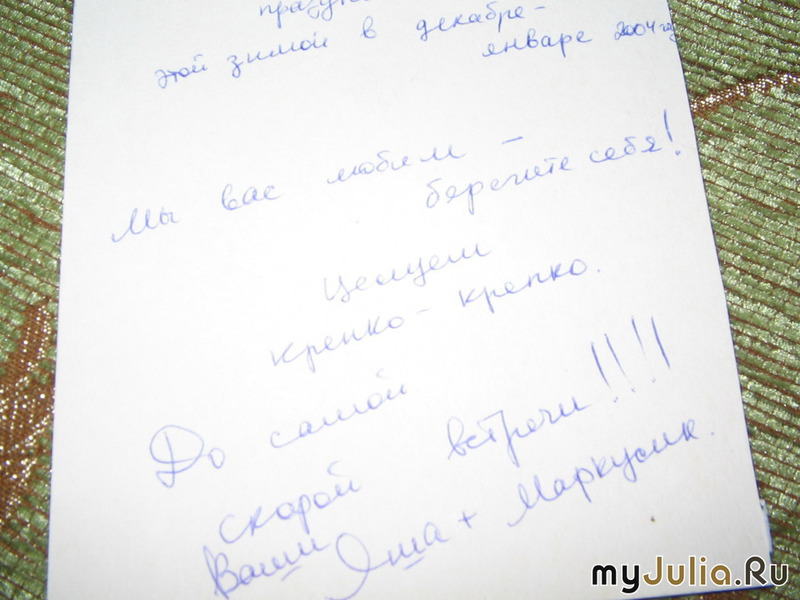 этой зимой в декабре-
январе 2004 г.
Мы вас любим -
берегите себя!
Целуем
крепко-крепко.
До самой
скорой встречи!!!!
Ваши Яша + Маркусик.
myJulia.Ru